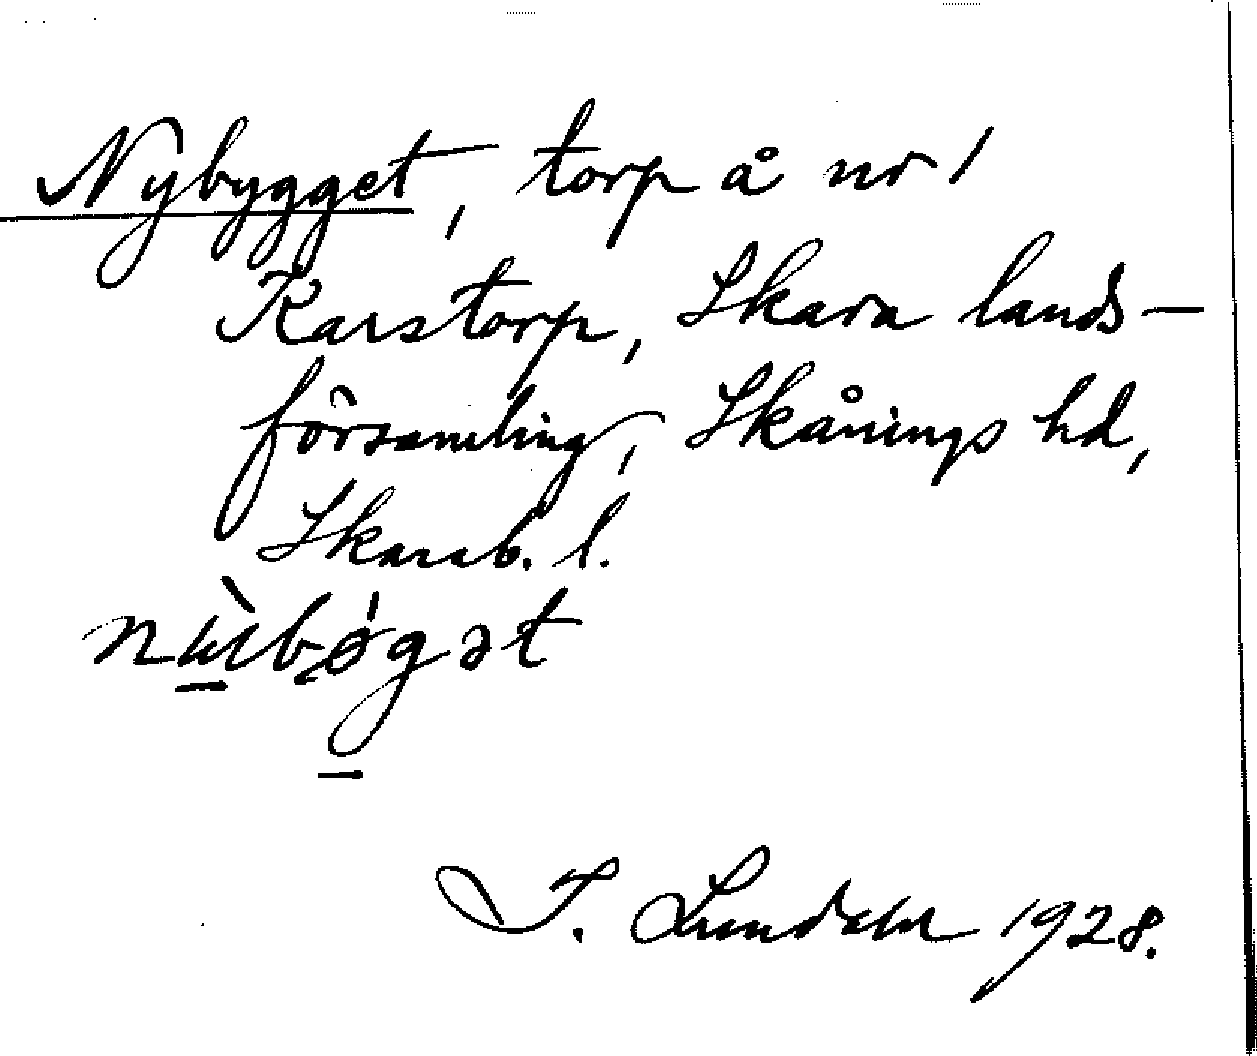 Nybygget, torp å nr 1
Karstorp, Skara lands-
församling, Skånings hd,
Skarab. l.
I. Lundahl 1928.